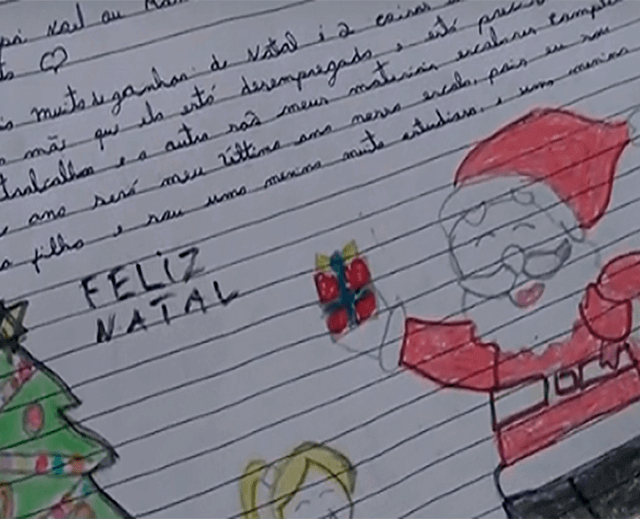 pai noel ou
♡
muito de ganhar de Natal é 2 coisas
mãe que ela está desempregada e está
trabalhar e a outra são meus materiais escolares
ano será meu último ano nessa escola, pois eu sou
filha e sou uma menina muito estudiosa, e uma menina
FELIZ
NATAL